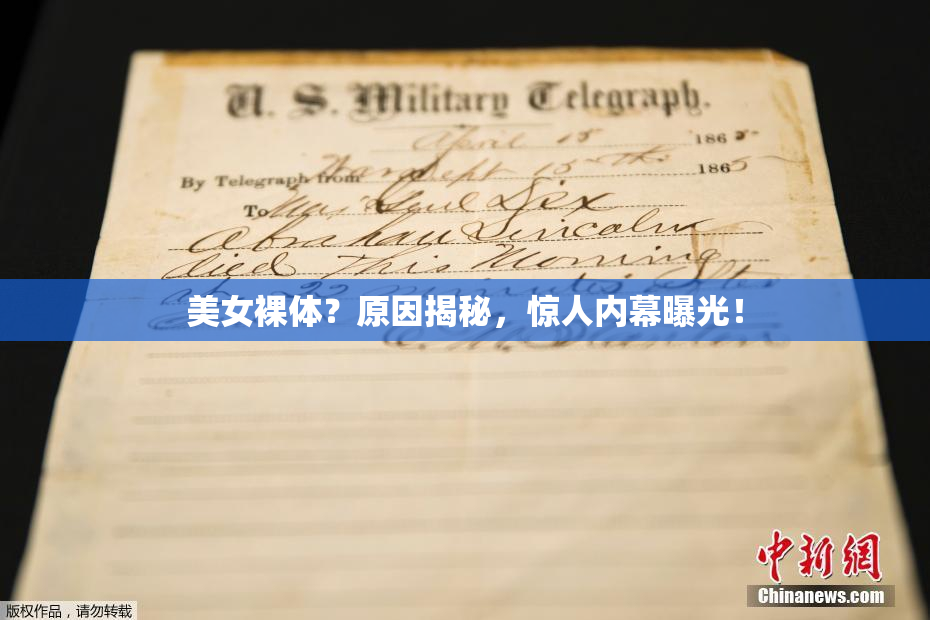 U. S. Military Telegraph.
April 15 1865
By Telegraph from War Dept 15th 1865
To Maj Genl Dix
Abraham Lincoln
died This Morning
at 22 minutes after
美女裸体？原因揭秘，惊人内幕曝光！
E. M. Stanton
中新网
Chinanews.com
版权作品，请勿转载